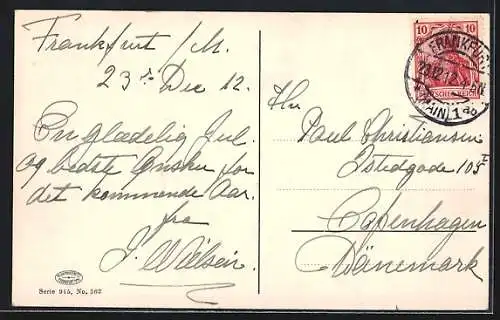 Frankfurt /M.
23 Dec 12.
En glædelig Jul
og bedste Ønsker for
det kommende Aar.
fra
J. Nielsen.
Serie 945, No. 562
10 10
DEUTSCHES REICH
FRANKFURT
23.12.12
(MAIN) 1
Hr.
Paul Christiansen
Istedgade 105 I
Copenhagen
Dänemark